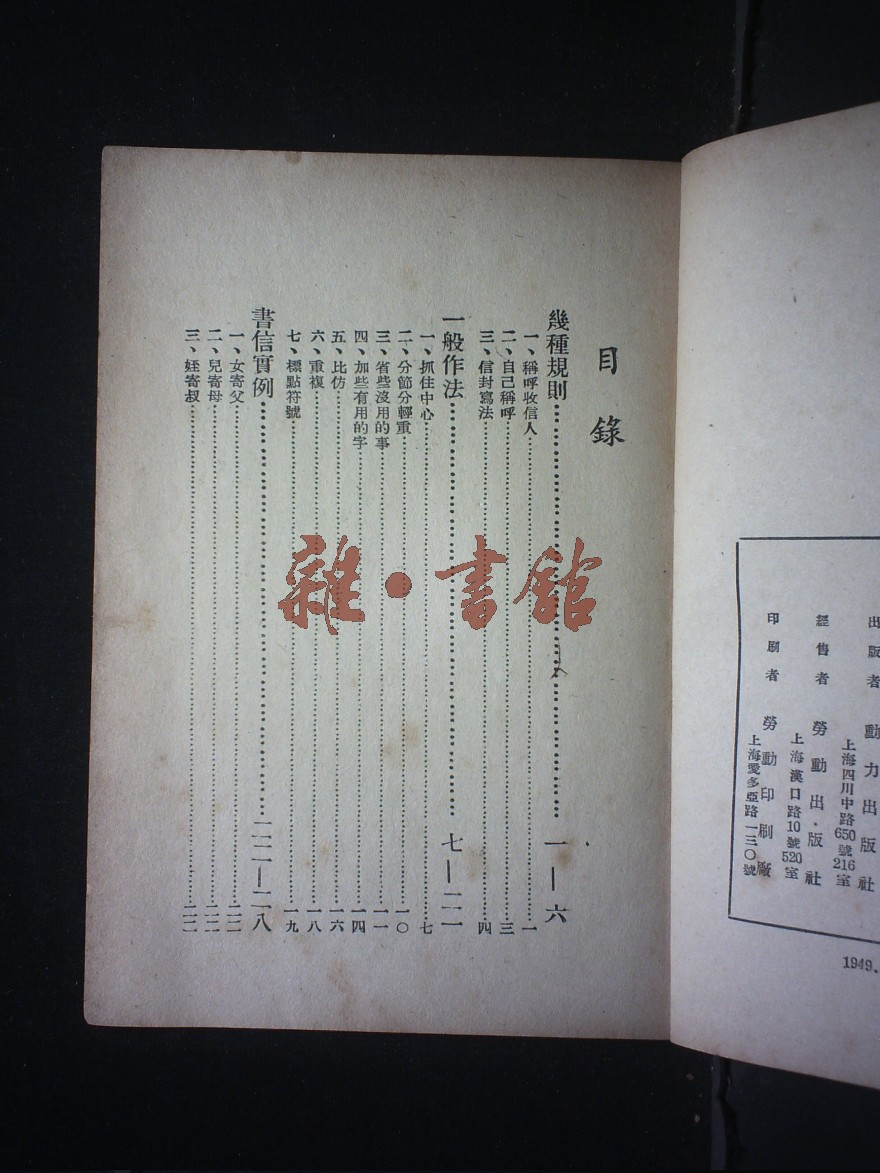 目錄
幾種規則 一—六
一、稱呼收信人 一
二、自己稱呼 三
三、信封寫法 四
一般作法 七—二一
一、抓住中心 七
二、分節分輕重 一〇
三、省些沒用的事 一一
四、加些有用的字 一四
五、比仿 一六
六、重複 一八
七、標點符號 一九
書信實例 二二—二八
一、女寄父 二二
二、兒寄母 二二
三、姪寄叔 二二
雜·書館
出版者 動力出版社
上海四川中路650號216室
經售者 勞動出版社
上海漢口路10號520室
印刷者 勞動印刷廠
上海愛多亞路一三〇號
1949.